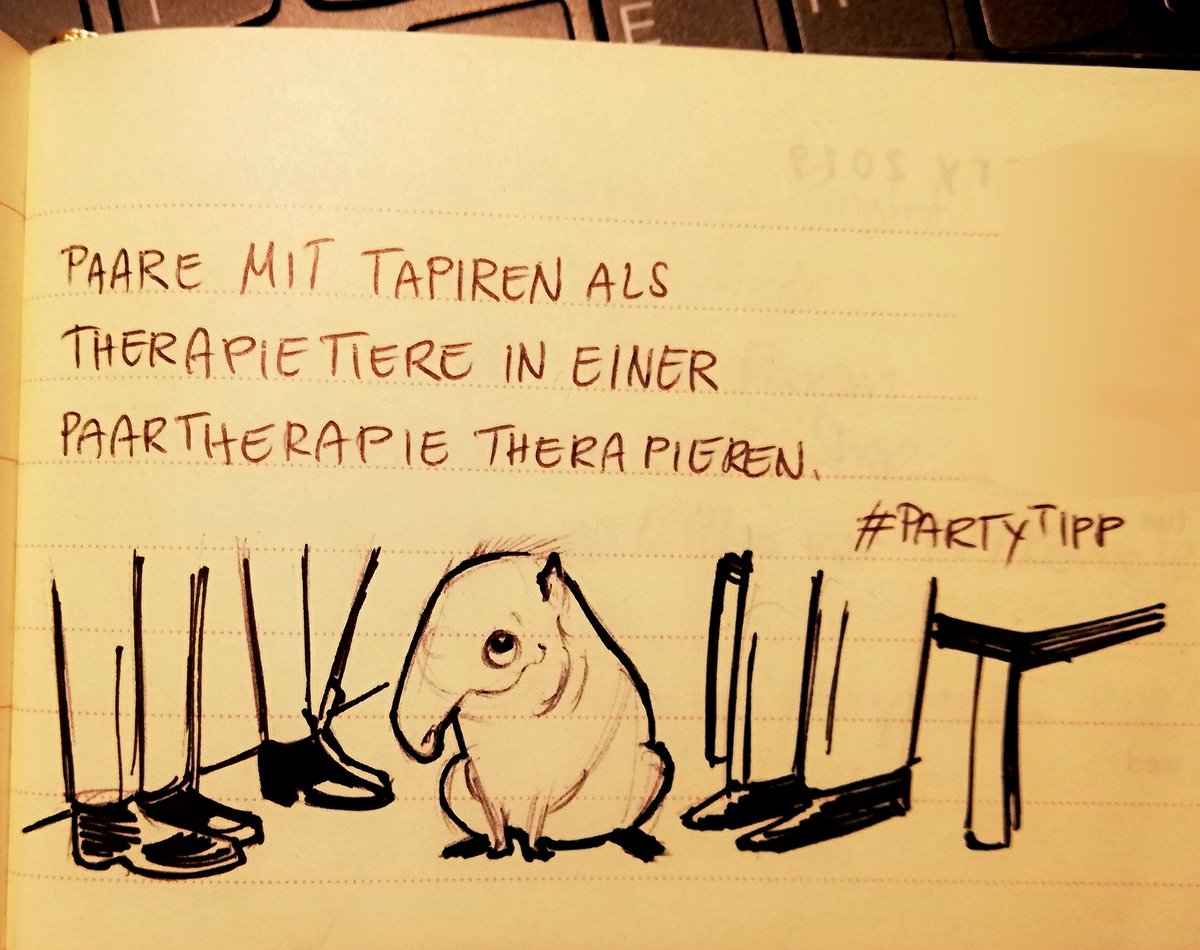 PAARE MIT TAPIREN ALS
THERAPIETIERE IN EINER
PAARTHERAPIE THERAPIEREN.
#PARTYTIPP